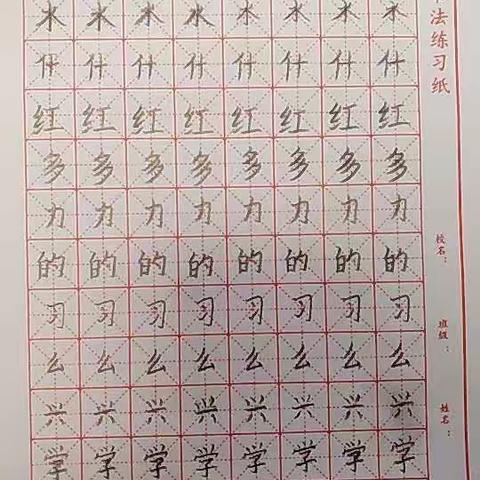 水水水水水水水水
什什什什什什什什
红红红红红红红红
多多多多多多多多
力力力力力力力力
的的的的的的的的
习习习习习习习习
么么么么么么么么
兴兴兴兴兴兴兴兴
学学学学学学学学
法练习纸
校名：
班级：
姓名：